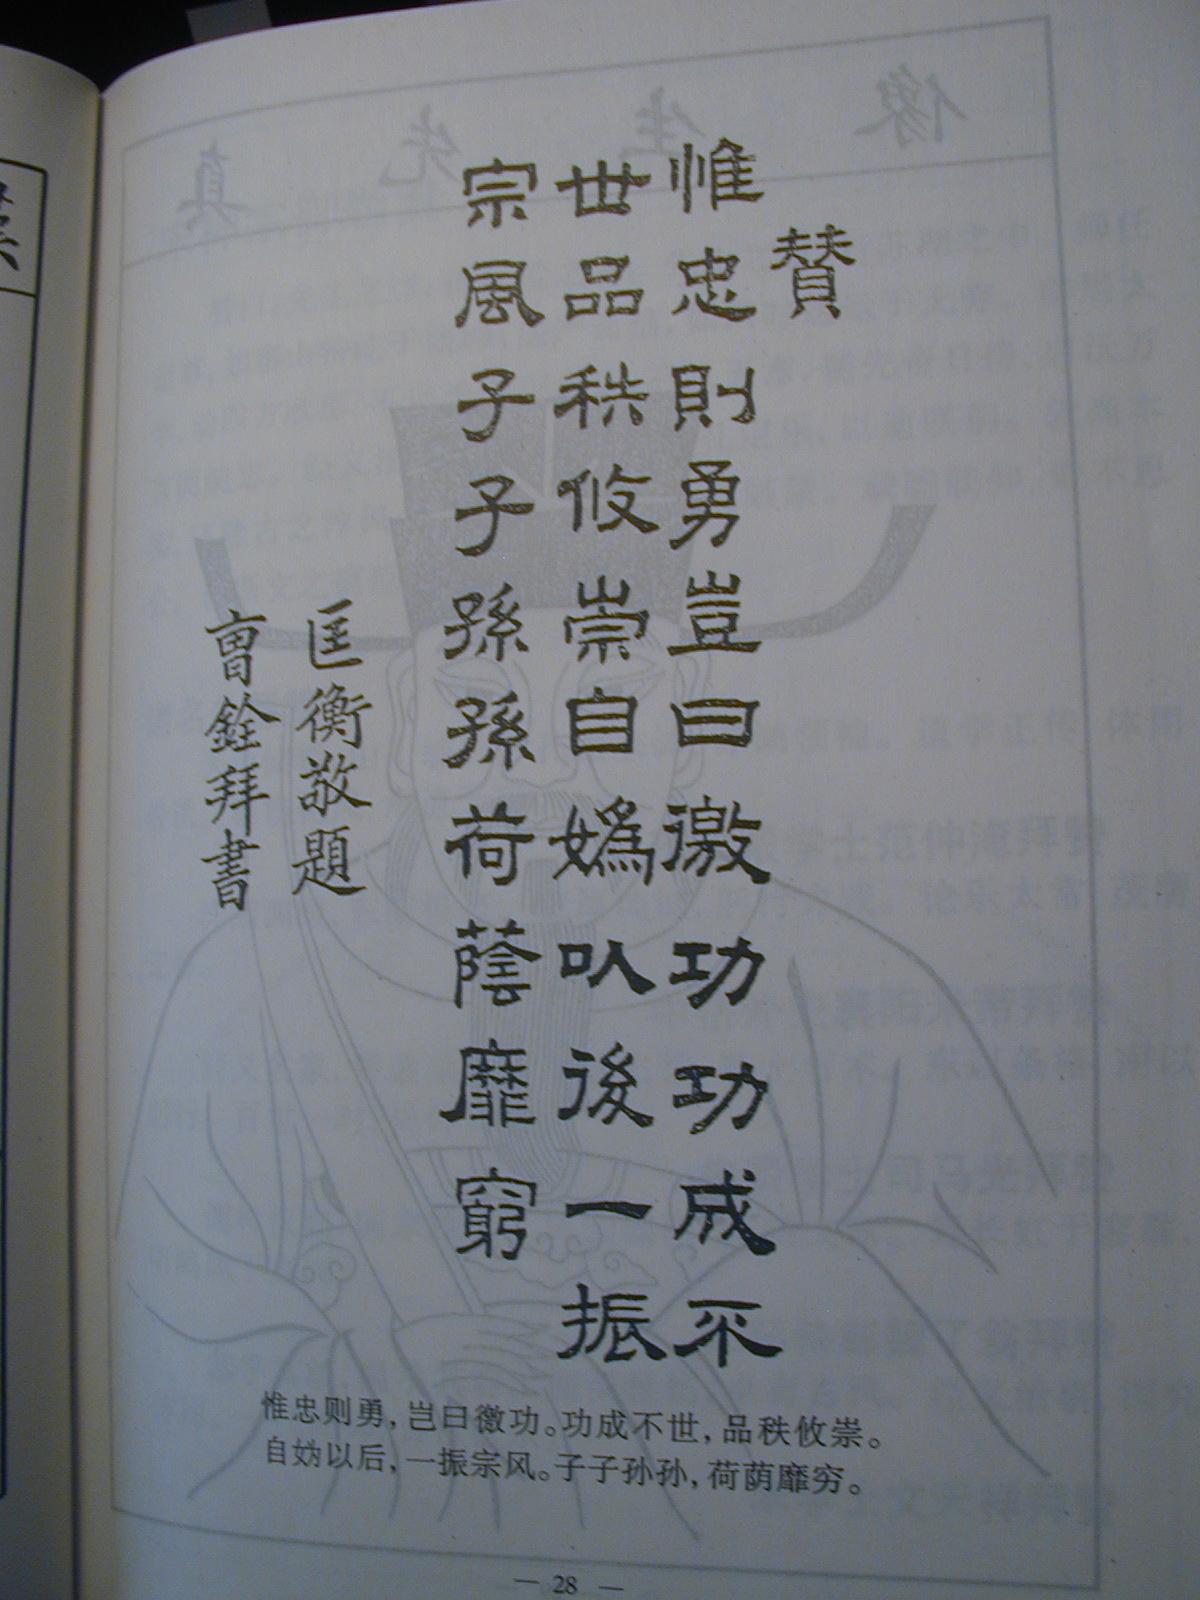 賛
惟忠則勇豈曰徼功功成不
世品秩攸崇自媯㕥後一振
宗風子子孫孫荷蔭靡窮
匡衡敬題
曺銓拜書
惟忠则勇，岂曰徼功。功成不世，品秩攸崇。
自妫以后，一振宗风。子子孙孙，荷荫靡穷。
— 28 —